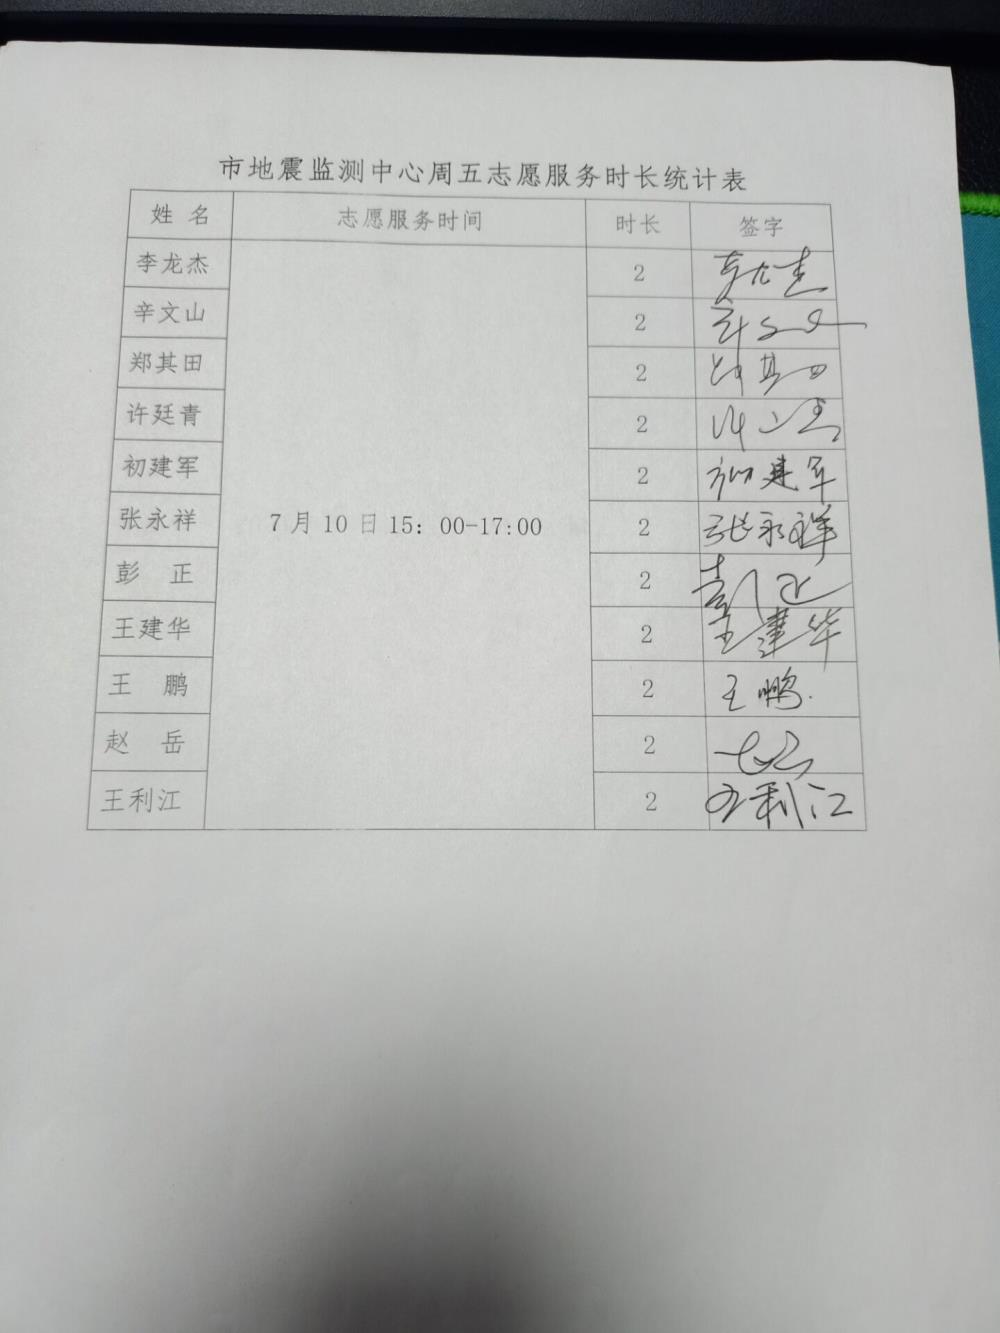 市地震监测中心周五志愿服务时长统计表
姓 名 志愿服务时间 时长 签字
李龙杰 2 李龙杰
辛文山 2
郑其田 2 郑其田
许廷青 2
初建军 2 初建军
张永祥 7月10日15：00-17:00 2 张永祥
彭 正 2 彭正
王建华 2 王建华
王 鹏 2 王鹏
赵 岳 2
王利江 2 王利江